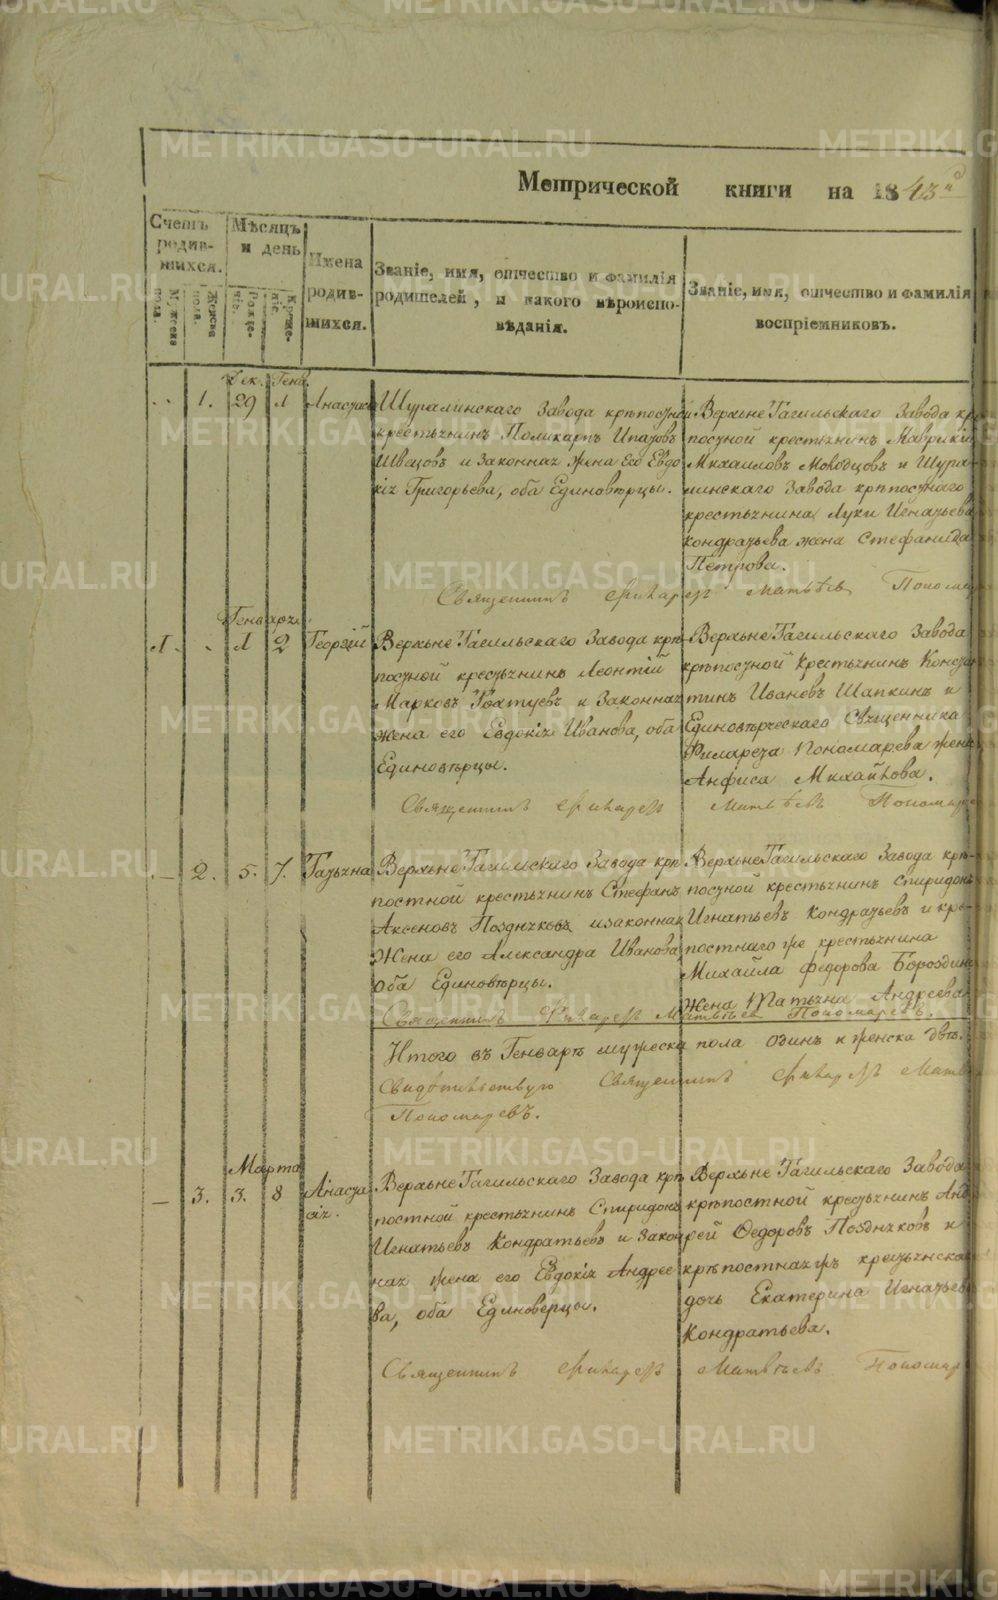 Метрической книги на 1843й
Счетъ родив-шихся.
Мужеска пола.
Женска пола.
Мѣсяцъ и день
Рожде-нія.
Креще-нія.
Имена родив-шихся.
Званіе, имя, отчество и фамилія
родителей, и какого вѣроиспо-
вѣданія.
Званіе, имя, отчество и фамилія
воспріемниковъ.
Дек. Генв.
1. 29 1 Анастасія
Шуралинскаго Завода крѣпостной
крестьянинъ Поликарпъ Ипатовъ
Швецовъ и законная жена его Евдо
кія Григорьева, оба Единовѣрцы.
Верхне Тагильскаго Завода крѣ
постной крестьянинъ Маврикій
Михаиловъ Молодцовъ и Шура-
линскаго Завода крѣпостнаго
крестьянина Луки Игнатьева
Кондратьева жена Стефанида
Петрова.
Священникъ Филаретъ Матвѣевъ Пономар
Генваря.
1. 1 2 Георгій
Верхне Тагильскаго Завода крѣ-
постной крестьянинъ Леонтій
Марковъ и Законная
жена его Евдокія Иванова, оба
Единовѣрцы.
Верхне Тагильскаго Завода
крѣпостной крестьянинъ Конста
тинъ Ивановъ Шапкинъ и
Единовѣрческаго Священника
Филарета Пономарева жена
Анфиса Михайлова.
Священникъ Филаретъ Матвѣевъ Пономар
2. 5. 7. Татьяна
Верхне Тагильскаго Завода крѣ
постной крестьянинъ Стефанъ
Аксеновъ Поздняковъ и законная
Жена его Александра Иванова,
оба Единовѣрцы.
Верхне Тагильскаго Завода крѣ-
постной крестьянинъ Спиридонъ
Игнатьевъ Кондратьевъ и крѣ-
постнаго же крестьянина
Михайла Федорова Бороздин
жена Татьяна Андреева.
Священникъ Филаретъ Матвѣевъ Пономаревъ.
Итого въ Генварѣ мужеска пола одинъ и женска двѣ.
Свидѣтельствую Священникъ Филаретъ Матв
Пономаревъ.
Марта
3. 3. 8 Анаста
сія.
Верхне Тагильскаго Завода крѣ
постной крестьянинъ Спиридонъ
Игнатьевъ Кондратьевъ и закон
ная жена его Евдокія Андрее
ва, оба Единоверцы.
Верхне Тагильскаго Завода
крѣпостной крестьянинъ Анд
рей Федоровъ Поздняковъ и
крѣпостная жъ крестьянска
дочь Екатерина Игнатьев
Кондратьева.
Священникъ Филаретъ Матвѣевъ Пономар
METRIKI.GASO-URAL.RU